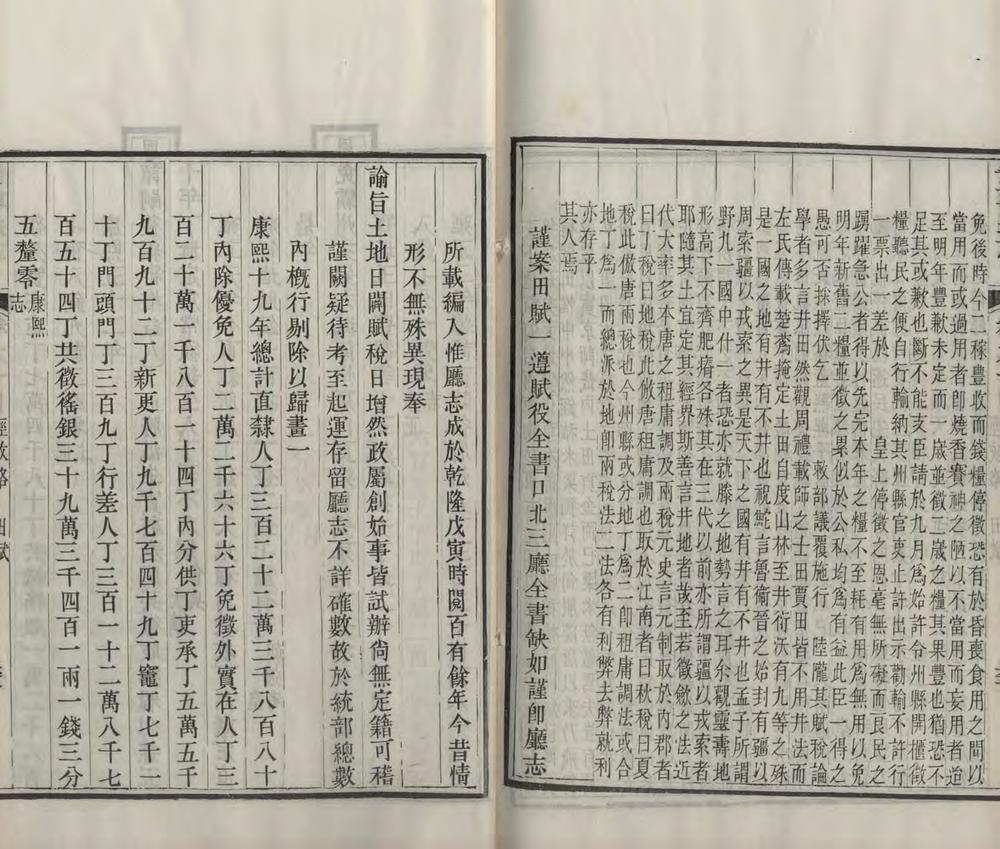 免後時今二稼豊收而錢糧停徴恐有於昏喪食用之間以
當用而或過用者卽燒香賽神之陋以不當用而妄用者迨
至明年豐歉未定而一歲並徴二歲之糧其果豐也猶恐不
足其或歉也斷不能支臣請於九月爲始許令州縣開櫃徴
糧聽民之便自行輸納其州縣官吏止許出示勸輸不許行
一票出一差於 皇上停徴之恩毫無所礙而良民之
踴躍急公者得以先完本年之糧不至耗有用爲無用以免
明年新舊二糧並徴之累似於公私均爲有益此臣一得之
愚可否採擇伏乞 敕部議覆施行 陸隴其賦稅論
學者多言井田然觀周禮載師之士田賈田皆不用井法而
左氏傳載楚蒍掩定土田自度山林至井衍沃有九等之殊
是一國之地有井有不井也祝鮀言魯衞晉之始封有疆以
周索疆以戎索之異是天下之國有井有不井也孟子所謂
野九一國中什一者恐亦就滕之地勢言之耳余觀靈壽地
形高下不齊肥瘠各殊其在三代以前亦所謂疆以戎索者
耶隨其土宜定其經界斯善言井地者哉至若徴歛之法近
代大率多本唐之租庸調及兩稅元史言元制取於內郡者
曰丁稅曰地稅此倣唐租庸調也取於江南者曰秋稅曰夏
稅此倣唐兩稅也今州縣或分地丁爲二卽租庸調法或合
地丁爲一而總派於地卽兩稅法二法各有利弊去弊就利
亦存乎
其人焉
謹案田賦一遵賦役全書口北三廳全書缺如謹卽廳志
所載編入惟廳志成於乾隆戊寅時閱百有餘年今昔情
形不無殊異現奉
諭旨土地日闢賦稅日增然政屬創始事皆試辦尙無定籍可稽
謹闕疑待考至起運存留廳志不詳確數故於統部總數
內槪行剔除以歸畫一
康熙十九年總計直隸人丁三百二十二萬三千八百八十
丁內除優免人丁二萬二千六十六丁免徴外實在人丁三
百二十萬一千八百一十四丁內分供丁吏承丁五萬五千
九百九十二丁新更人丁九千七百四十九丁竈丁七千一
十丁門頭門丁三百九丁行差人丁三百一十二萬八千七
百五十四丁共徴徭銀三十九萬三千四百一兩一錢三分
五釐零康熙志